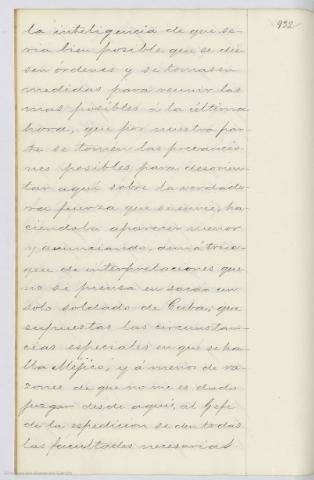 932
la inteligencia de que se-
ria bien posible que se die-
sen órdenes y se tomasen
medidas para reunir las
mas posibles á la última
hora, que por nuestra par-
te se tomen las precaucio-
nes posibles para desorien-
tar aquí sobre la verdade-
ra fuerza que se envie, ha-
ciendola aparecer menor
y anunciando, aun á trueque
que de interpretaciones que
no se piensa en sacar un
solo soldado de Cuba; que
supuestas las circunstan-
cias especiales en que se ha-
lla Méjico, y á menos de ra-
zones de que no me es dado
juzgar desde aquí, al Gefe
de la espedicion se den todas
las facultades necesarias